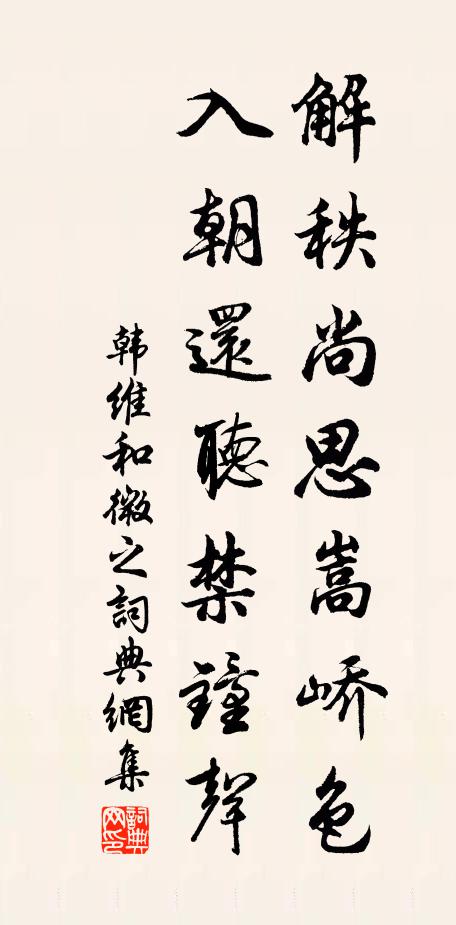 解秩尚思嵩峤色
入朝還聽禁鐘聲
韩維和微之詞典網集
詞典网印